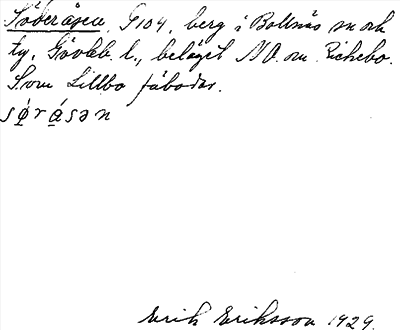 Söderåsen, G104, berg i Bollnäs sn och
ty, Gävleb. l., beläget NO. om Rickebo.
S. om Lillbo fäbodar.
sǿrásən
Erik Eriksson 1929.